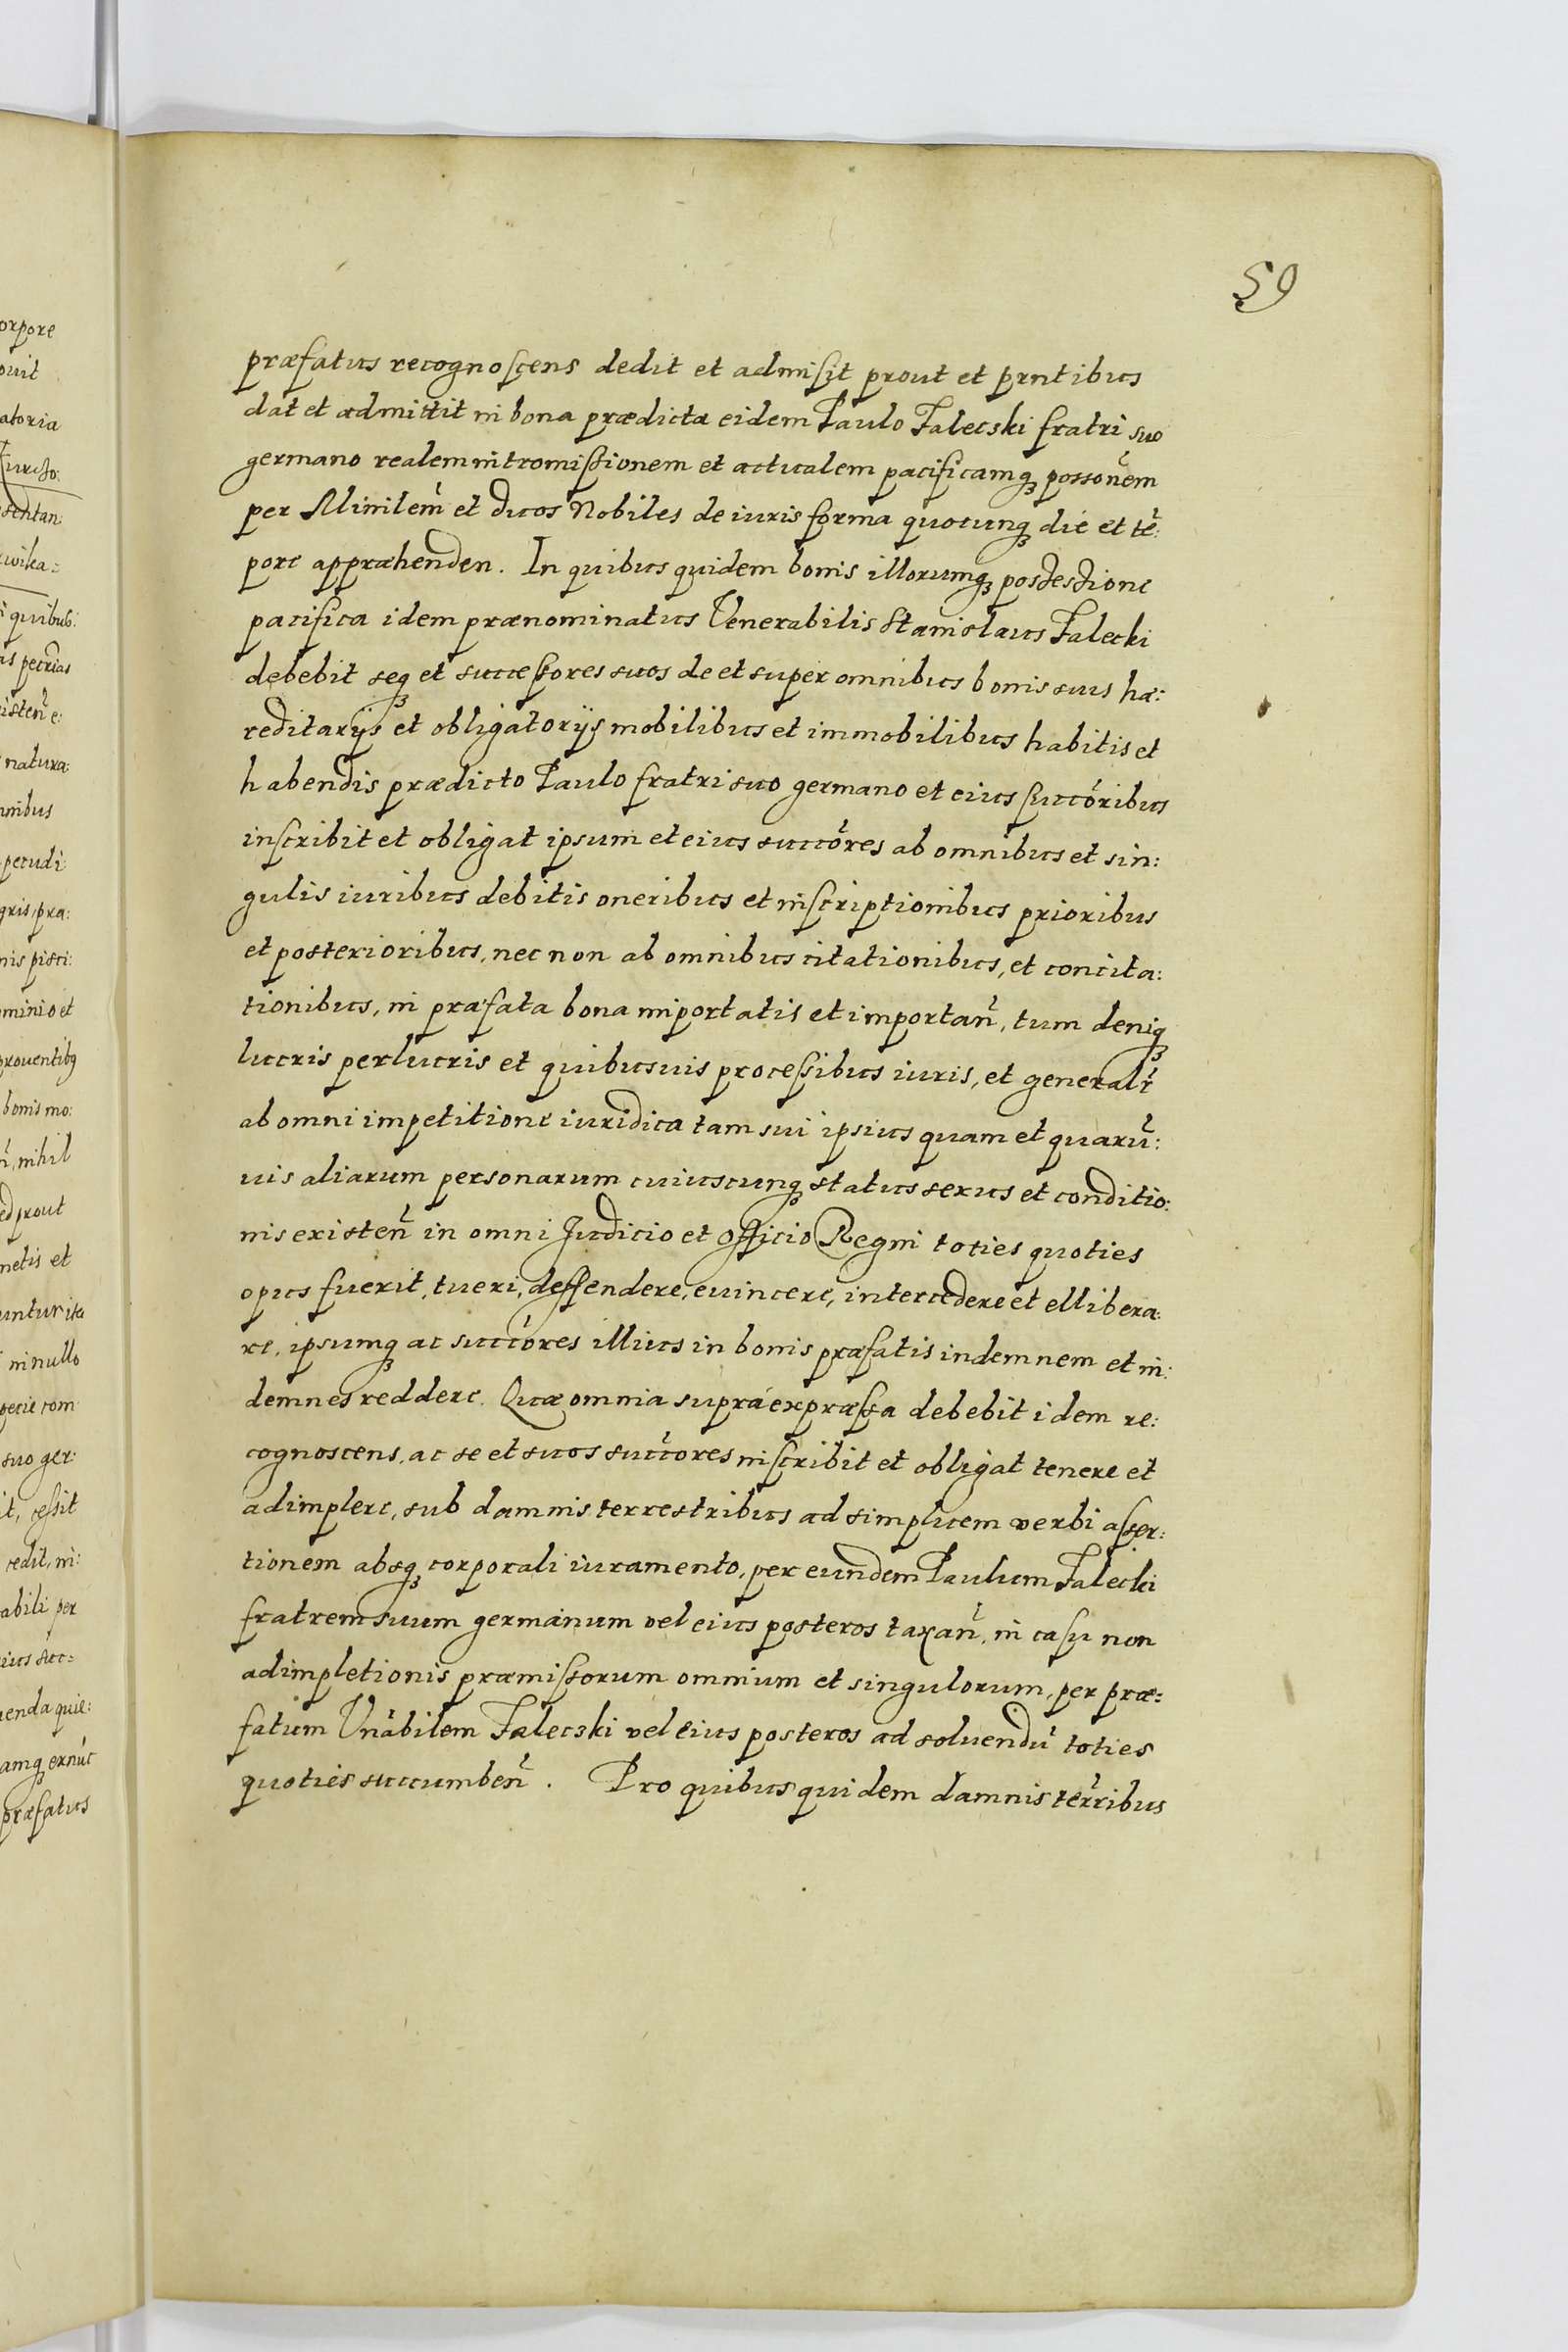 59
præfatus recognoscens dedit et admisit prout et prntibus
dat et admittit in bona prædicta eidem Paulo Falecski fratri suo
germano realem intromissionem et actualem pacificamq possonem
per Ministem et duos Nobiles de iuris forma quocunq die et te:
pore appræhenden. In quibus quidem bonis illorumq possessione
pacifica idem prænominatus Venerabilis Stanislaus Falecki
debebit seq et successores suos de et super omnibus bonis suis hæ:
reditarijs et obligatorijs mobilibus et immobilibus habitis et
habendis prædicto Paulo fratri suo germano et eius succoribus
inscribit et obligat ipsum et eius succores ab omnibus et sin:
gulis iuribus debitis oneribus et inscriptionibus prioribus
et posterioribus, nec non ab omnibus citationibus, et concita:
tionibus, in præfata bona importatis et importan, tum deniq
lucris perlucris et quibusuis processibus iuris, et generalr
ab omni impetitione iuridica tam sui ipsius quam et quaru:
uis aliarum personarum cuiuscunq status sexus et conditio:
nis existen in omni Judicio et Officio Regni toties quoties
opus fuerit, tueri, deffendere, euincere, intercedere et ellibera:
re, ipsumq ac succores illius in bonis præfatis indemnem et in:
demnes reddere. Quæ omnia supra expræssa debebit idem re:
cognoscens, ac se et suos succores inscribit et obligat tenere et
adimplere, sub damnis terrestribus ad simplicem verbi asser:
tionem absq corporali iuramento, per eundem Paulum Falecki
fratrem suum germanum vel eius posteros taxan, in casu non
adimpletionis præmissorum omnium et singulorum, per præ:
fatum Vnabilem Falecski vel eius posteros ad soluendu toties
quoties succumben. Pro quibus quidem damnis terribus